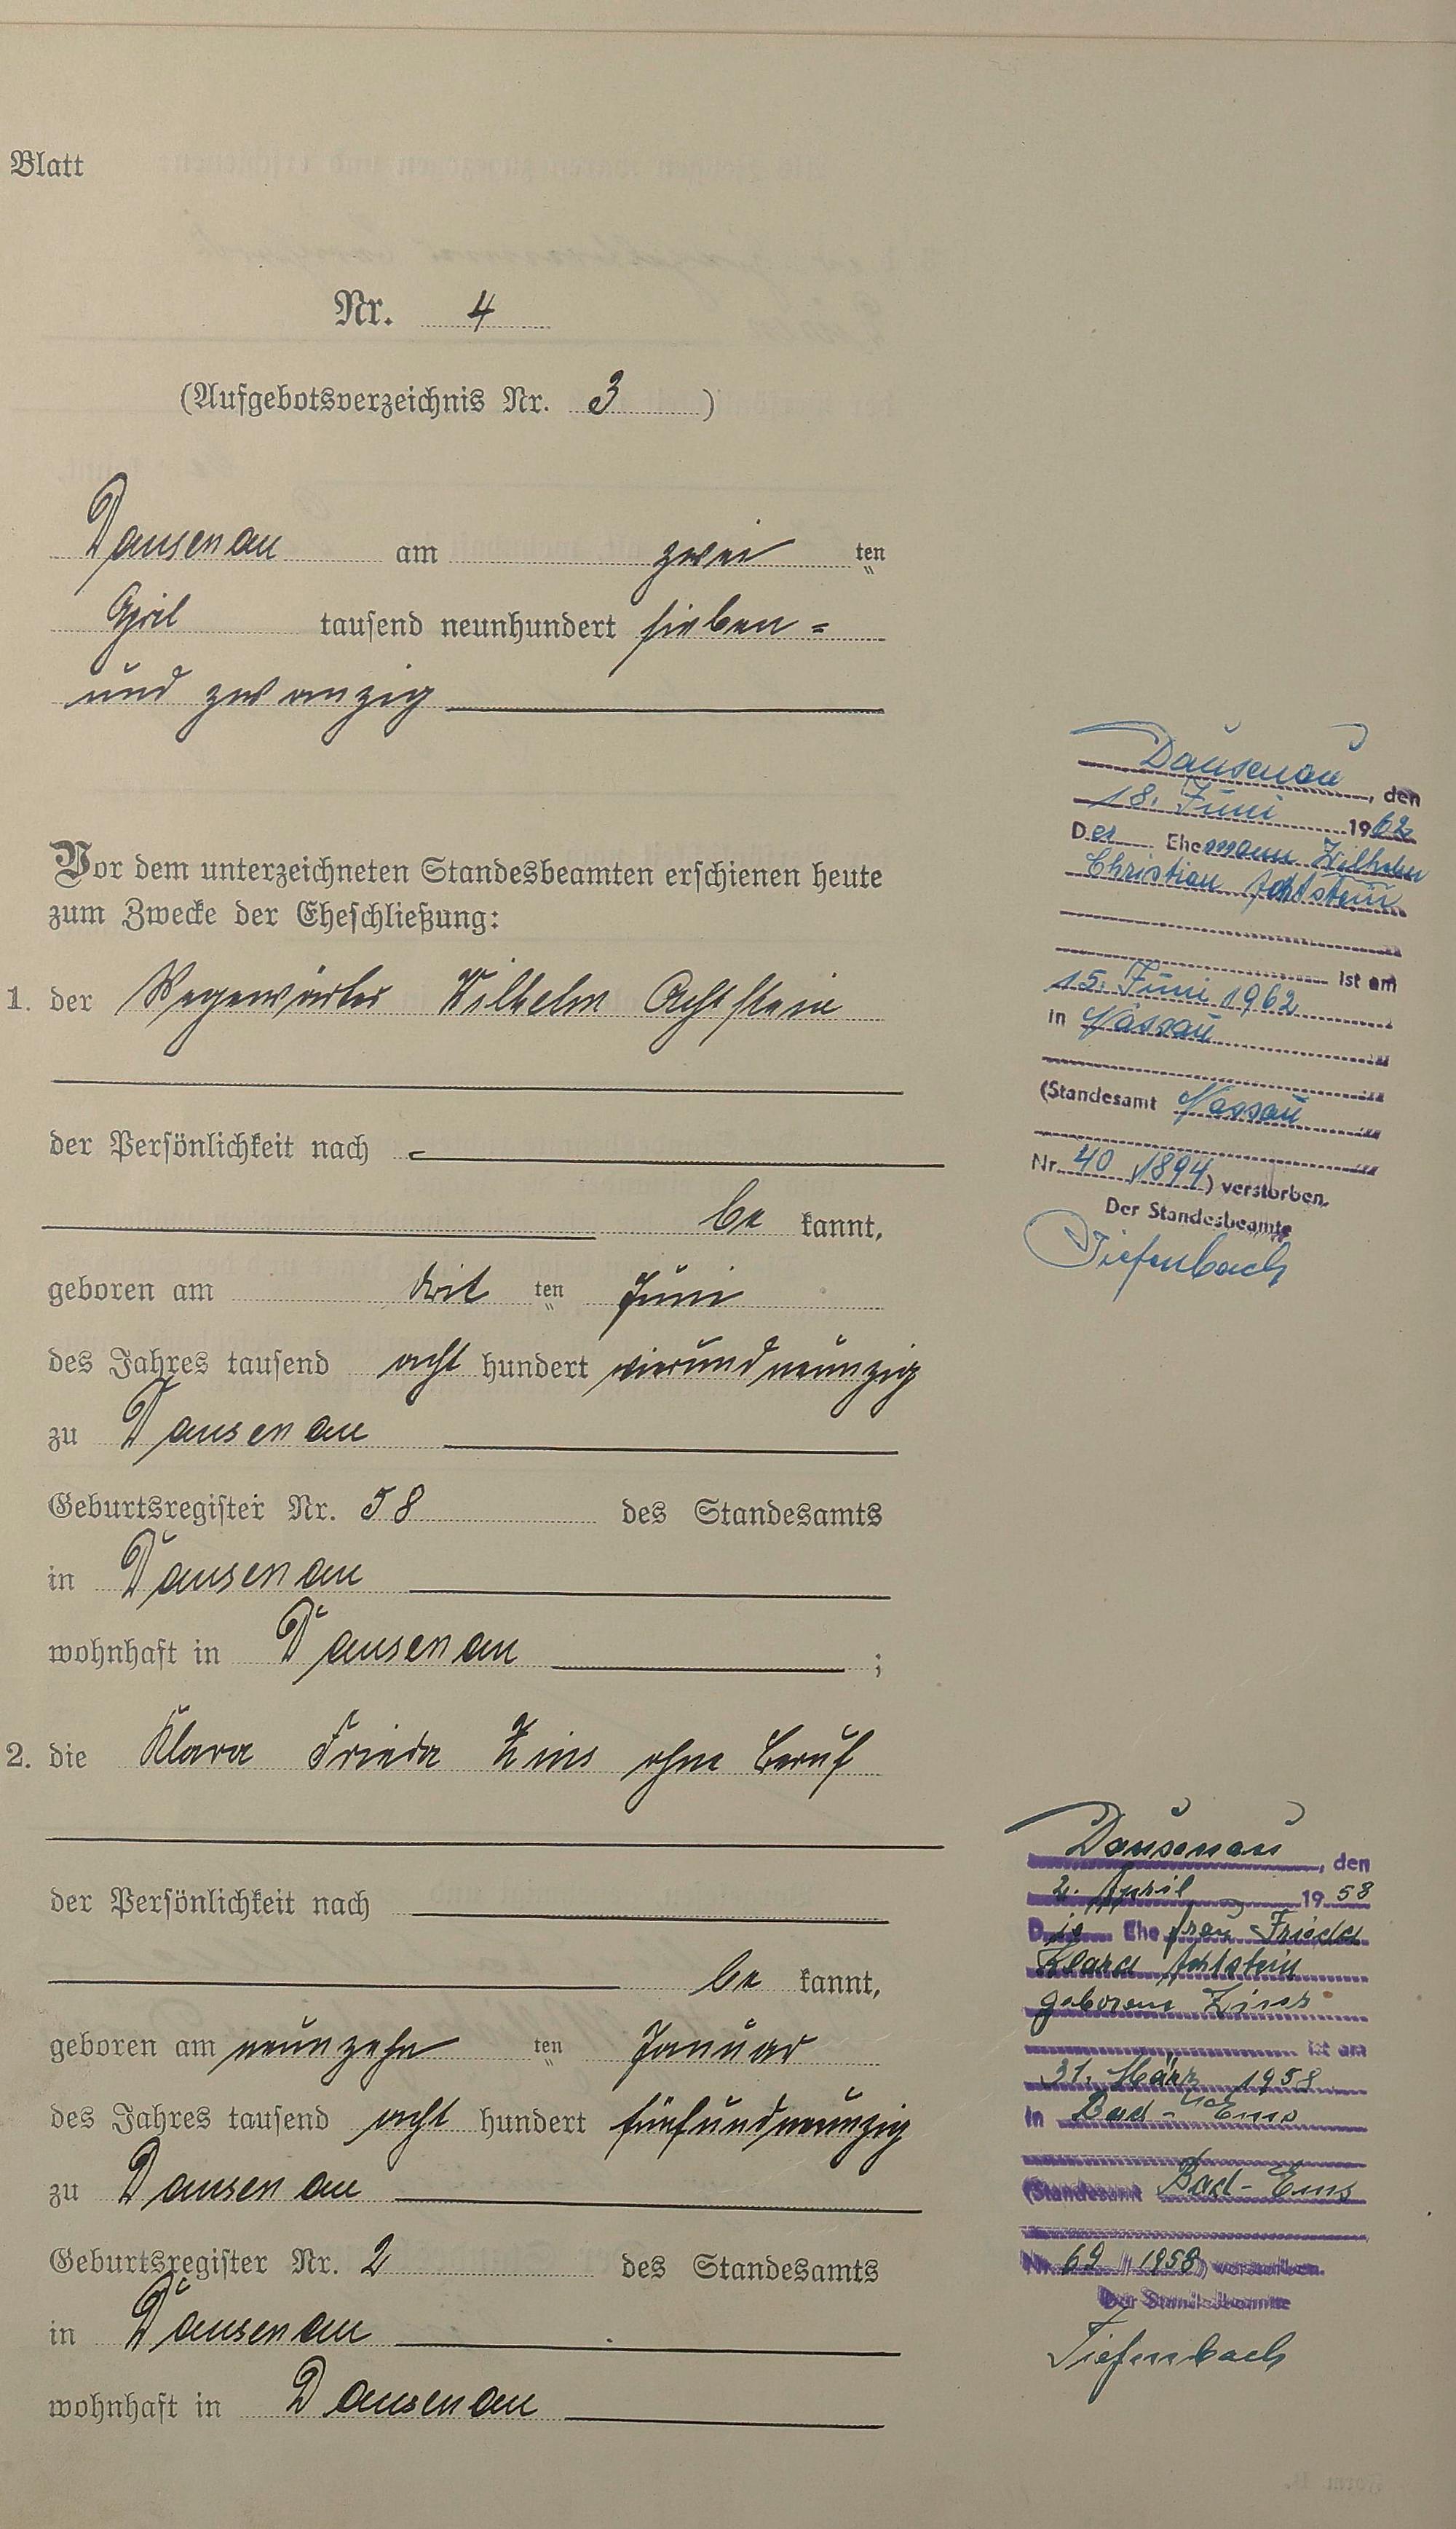 Blatt
Nr. 4
(Aufgebotsverzeichnis Nr. 3)
Dausenau am zwei ten
April tausend neunhundert sieben=
und zwanzig
Vor dem unterzeichneten Standesbeamten erschienen heute
zum Zwecke der Eheschließung:
1. der Wegewärter Wilhelm Achtstein
der Persönlichkeit nach
be kannt,
geboren am drit ten Juni
des Jahres tausend acht hundert vierundneunzig
zu Dausenau
Geburtsregister Nr. 58 des Standesamts
in Dausenau
wohnhaft in Dausenau ;
2. die Klara Frieda Zins ohne Beruf
der Persönlichkeit nach
be kannt,
geboren am neunzehn ten Januar
des Jahres tausend acht hundert fünfundneunzig
zu Dausenau
Geburtsregister Nr. 2 des Standesamts
in Dausenau
wohnhaft in Dausenau
Dausenau, den
18. Juni 1962
Der Ehemann Wilhelm
Christian Achtstein
ist am
15. Juni 1962
in Nassau
(Standesamt Nassau
Nr. 40 1894) verstorben.
Der Standesbeamte
Tiefenbach
Dausenau, den
2. April 1958
Die Ehefrau Frieda
Klara Achtstein
geborene Zins
ist am
31. März 1958
in Bad-Ems
(Standesamt Bad-Ems
Nr. 69 1958) verstorben.
Der Standesbeamte
Tiefenbach